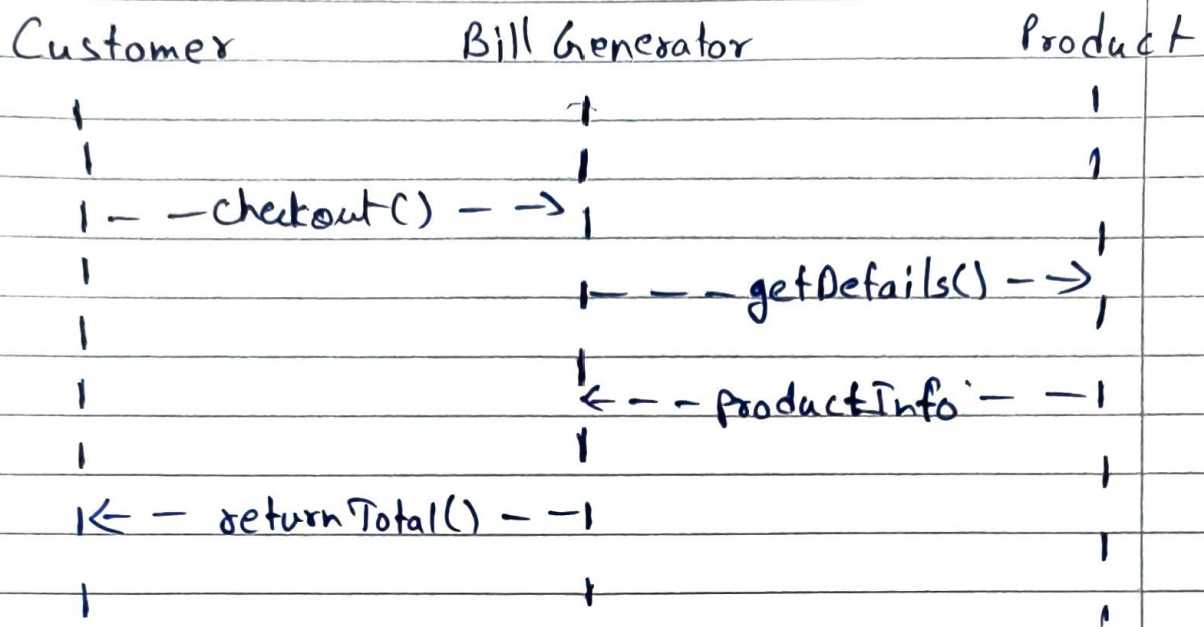 Customer Bill Generator Product
checkout()
getDetails()
productInfo
returnTotal()